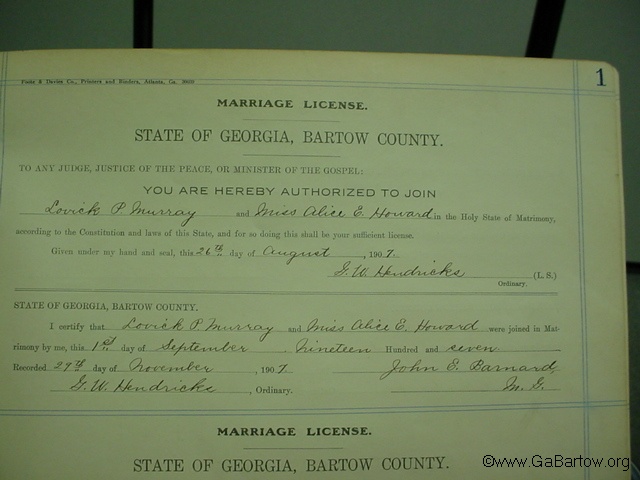 Foote & Davies Co., Printers and Binders, Atlanta, Ga.
1
MARRIAGE LICENSE.
STATE OF GEORGIA, BARTOW COUNTY.
TO ANY JUDGE, JUSTICE OF THE PEACE, OR MINISTER OF THE GOSPEL:
YOU ARE HEREBY AUTHORIZED TO JOIN
Lovick P Murray and Miss Alice E. Howard in the Holy State of Matrimony,
according to the Constitution and laws of this State, and for so doing this shall be your sufficient license.
Given under my hand and seal, this 26th day of August, 1907.
G. W. Hendricks (L. S.)
Ordinary.
STATE OF GEORGIA, BARTOW COUNTY.
I certify that Lovick P Murray and Miss Alice E. Howard were joined in Mat-
rimony by me, this 1st day of September Nineteen Hundred and seven
Recorded 29th day of November, 1907. John E. Barnard,
G. W. Hendricks, Ordinary. M. G.
MARRIAGE LICENSE.
STATE OF GEORGIA, BARTOW COUNTY.
©www.GaBartow.org